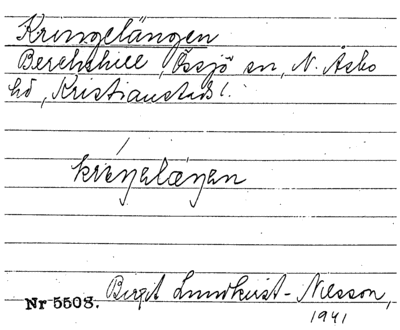 Kringelängen
Berchshill, Össjö sn, N. Åsbo
hd, Kristianstads l.
kriŋəlæŋən
Nr 5508. Birgit Lundkvist-Nilsson,
1941